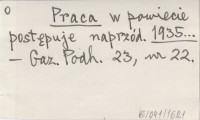 O
Praca w powiecie
postępuje naprzód. 1935...
— Gaz. Podh. 23, nr 22.